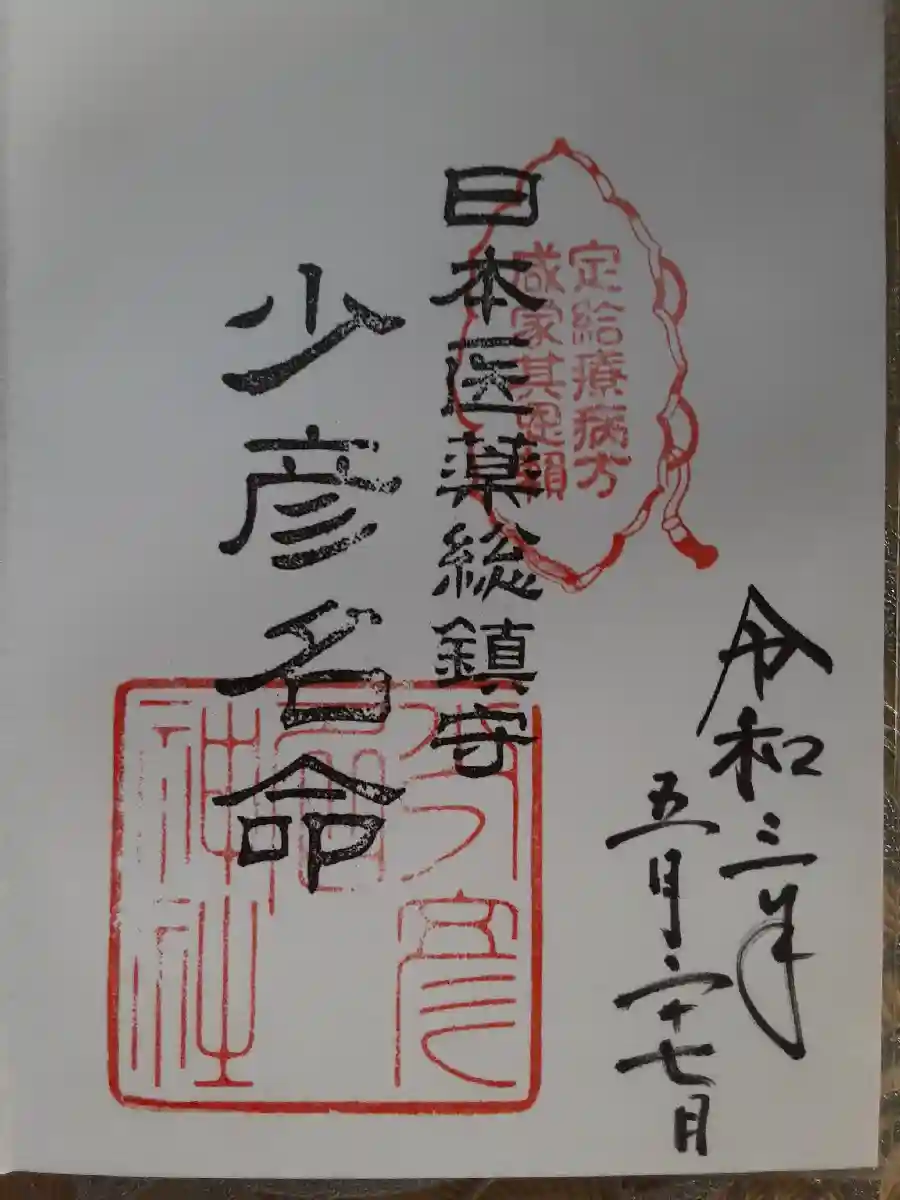 令和三年
五月二十七日
定給療病方
咸蒙其恩頼
日本医薬総鎮守
少彦名命
少彦
名
神社